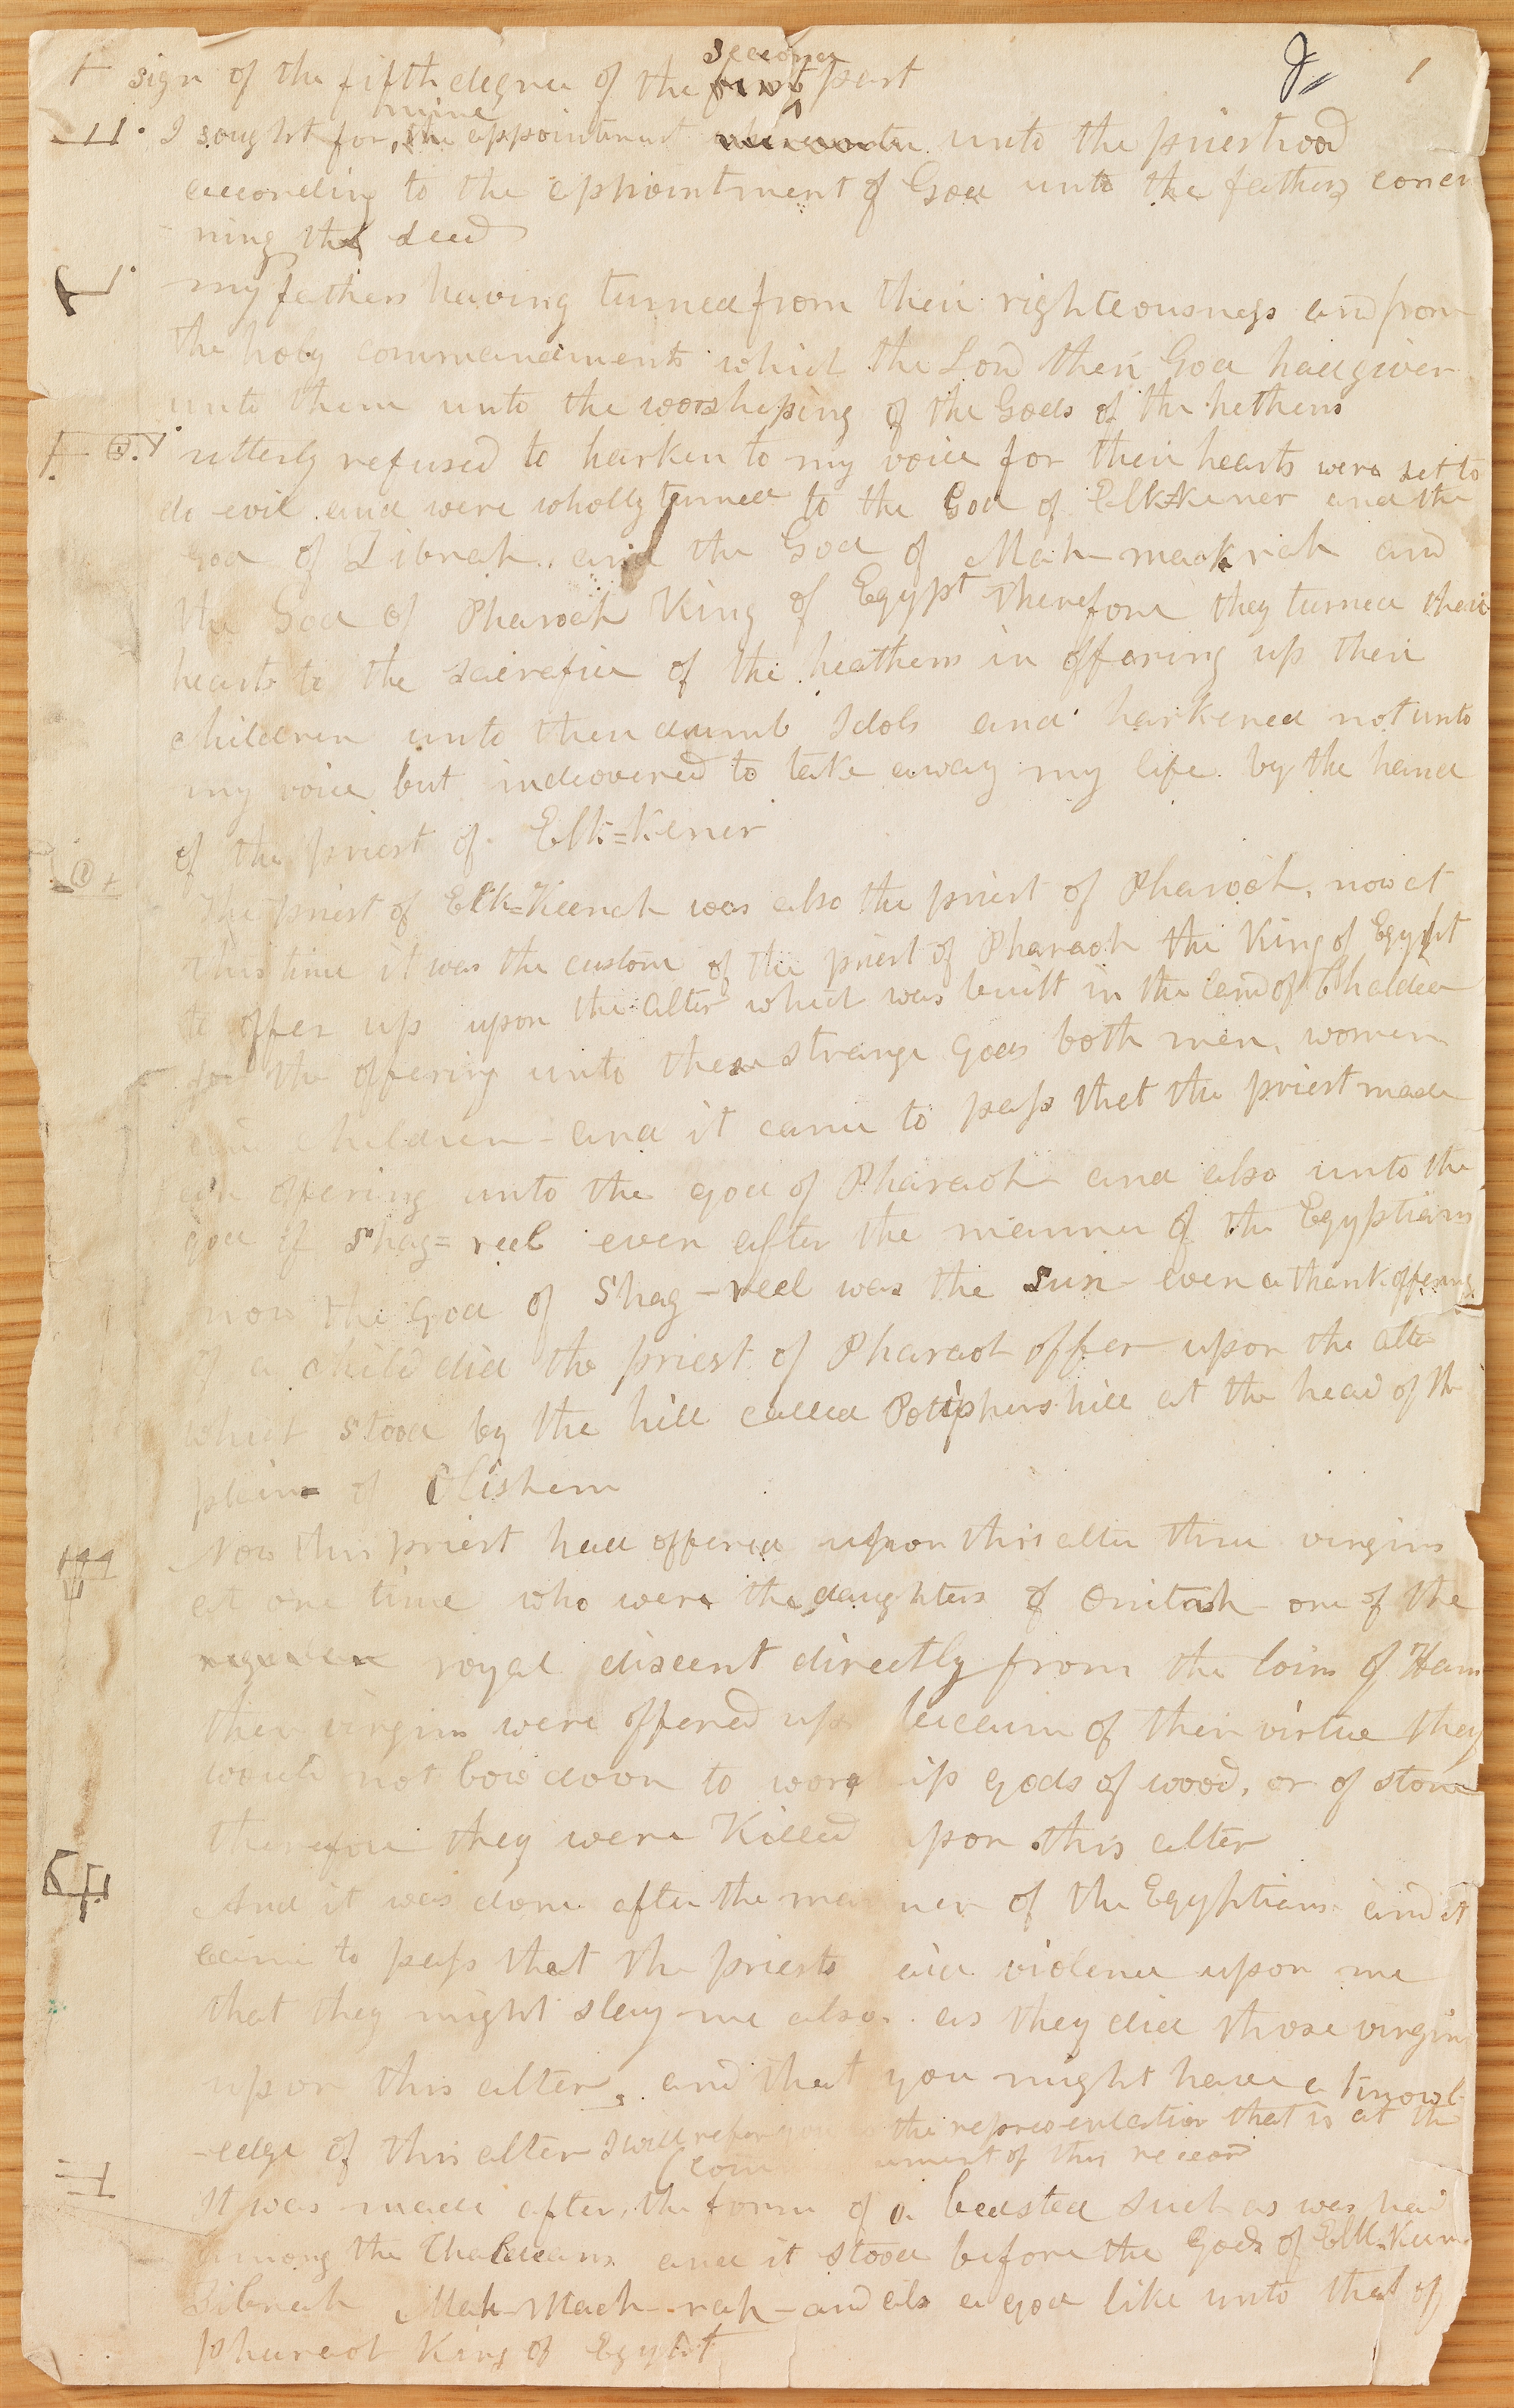 sign of the fifth degree of the first second part
I sought for mine the appointment unto the priesthood
according to the appointment of God unto the fathers concer
ning the seed
my fathers having turned from their righteousness and from
the holy commandments which the Lord their God had given
unto them unto the worshiping of the Gods of the hethens
utterly refused to harken to my voice for their hearts were set to
do evil and were wholly turned to the God of Elk=kener and the
God of Zibnah and the God of Mah-mackrah and
the God of Pharoah King of Egypt therefore they turned their
hearts to the sacrefice of the heathens in offering up their
children unto their dumb Idols and harkened not unto
my voice but indeovered to take away my life by the hand
of the priest of Elk=kener
The priest of Elk=Keenah was also the priest of Pharoah, now at
this time it was the custom of the priest of Pharaoh the King of Egypt
to offer up upon the alter which was built in the land of Chaldea
for the offering unto these strange gods both men, women
and children - and it came to pass that the priest made
an offering unto the god of Pharaoh and also unto the
god of Shag=reel even after the manner of the Egyptians
now the god of Shag-reel was the Sun - even a thank offering
of a child did the priest of Pharaoh offer upon the alter
which stood by the hill called Potiphers hill at the head of the
plain of Olishem
Now this priest had offered upon this alter three virgins
at one time who were the daughters of Onitah one of the
royal discent directly from the loins of Ham
these virgins were offered up because of their virtue they
would not bow down to worship gods of wood, or of stone
therefore they were Killed upon this alter
And it was done after the manner of the Egyptians and it
came to pass that the priests did violence upon me
that they might slay me also. as they did those virgins
upon this alter, and that you might have a knowl
-edge of this alter I will refer you to the representation that is at the
com ment of this record
It was made after the form of a bedsted such as was had
among the Chaldeans and it stood before the Gods of Elk-Keen
Zibnah Mah-Mach-rah - and also a god like unto that of
pharaoh King of Egypt